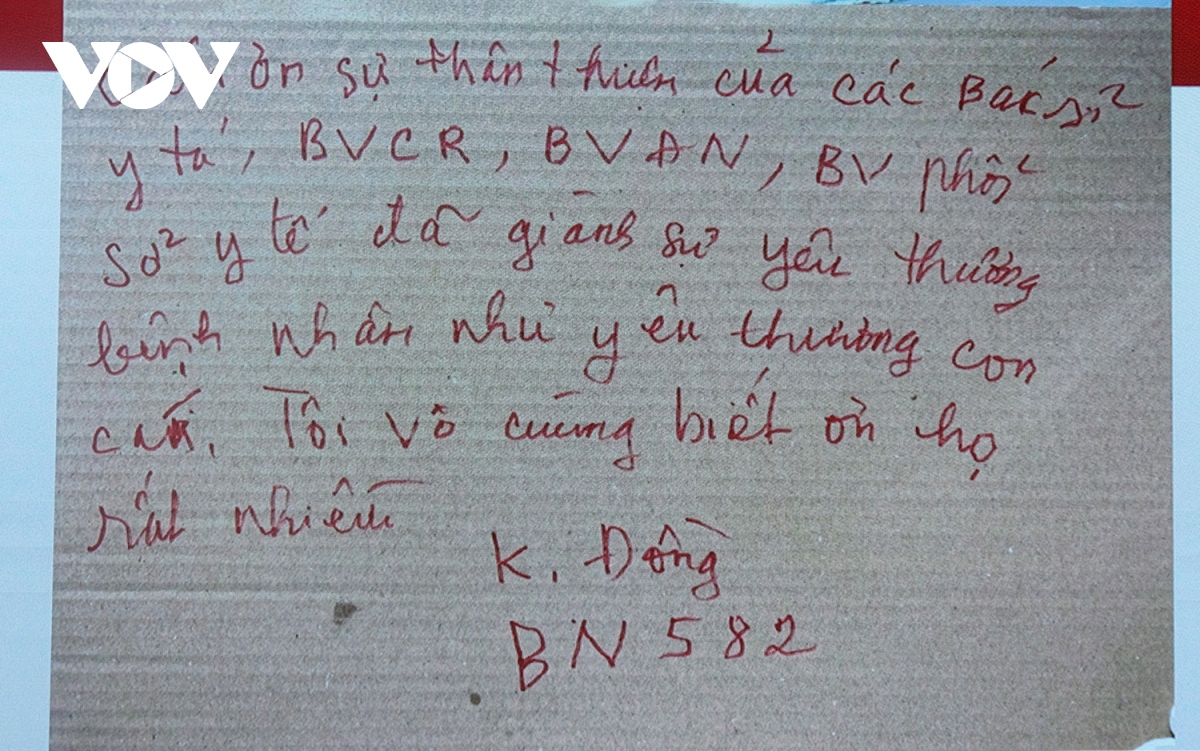 VOV
ơn sự thân thiện của các Bác sỉ
y tá, BVCR, BVAN, BV phổi
sở y tế đã giành sự yêu thương
bệnh nhân như yêu thương con
cái. Tôi vô cùng biết ơn họ
rất nhiều
K. Đồng
BN 582